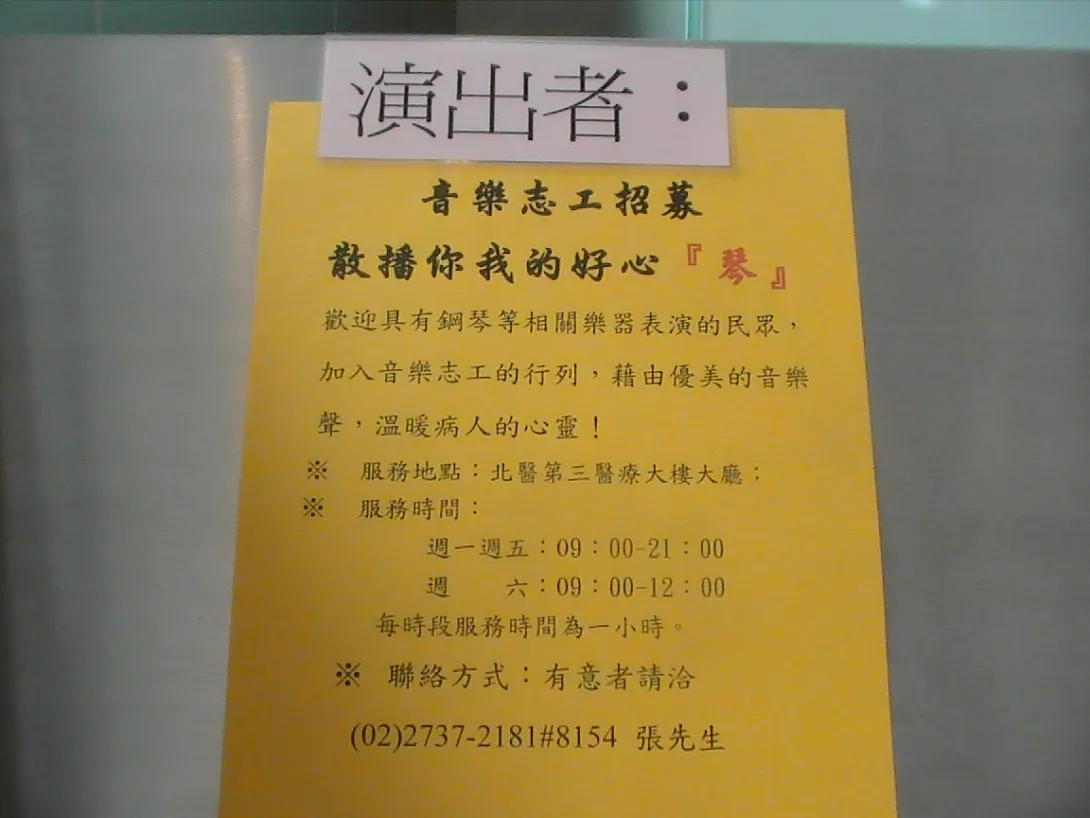 演出者：
音樂志工招募
散播你我的好心『琴』
歡迎具有鋼琴等相關樂器表演的民眾，
加入音樂志工的行列，藉由優美的音樂
聲，溫暖病人的心靈！
※ 服務地點：北醫第三醫療大樓大廳；
※ 服務時間：
週一週五：09：00-21：00
週　六：09：00-12：00
每時段服務時間為一小時。
※ 聯絡方式：有意者請洽
(02)2737-2181#8154 張先生